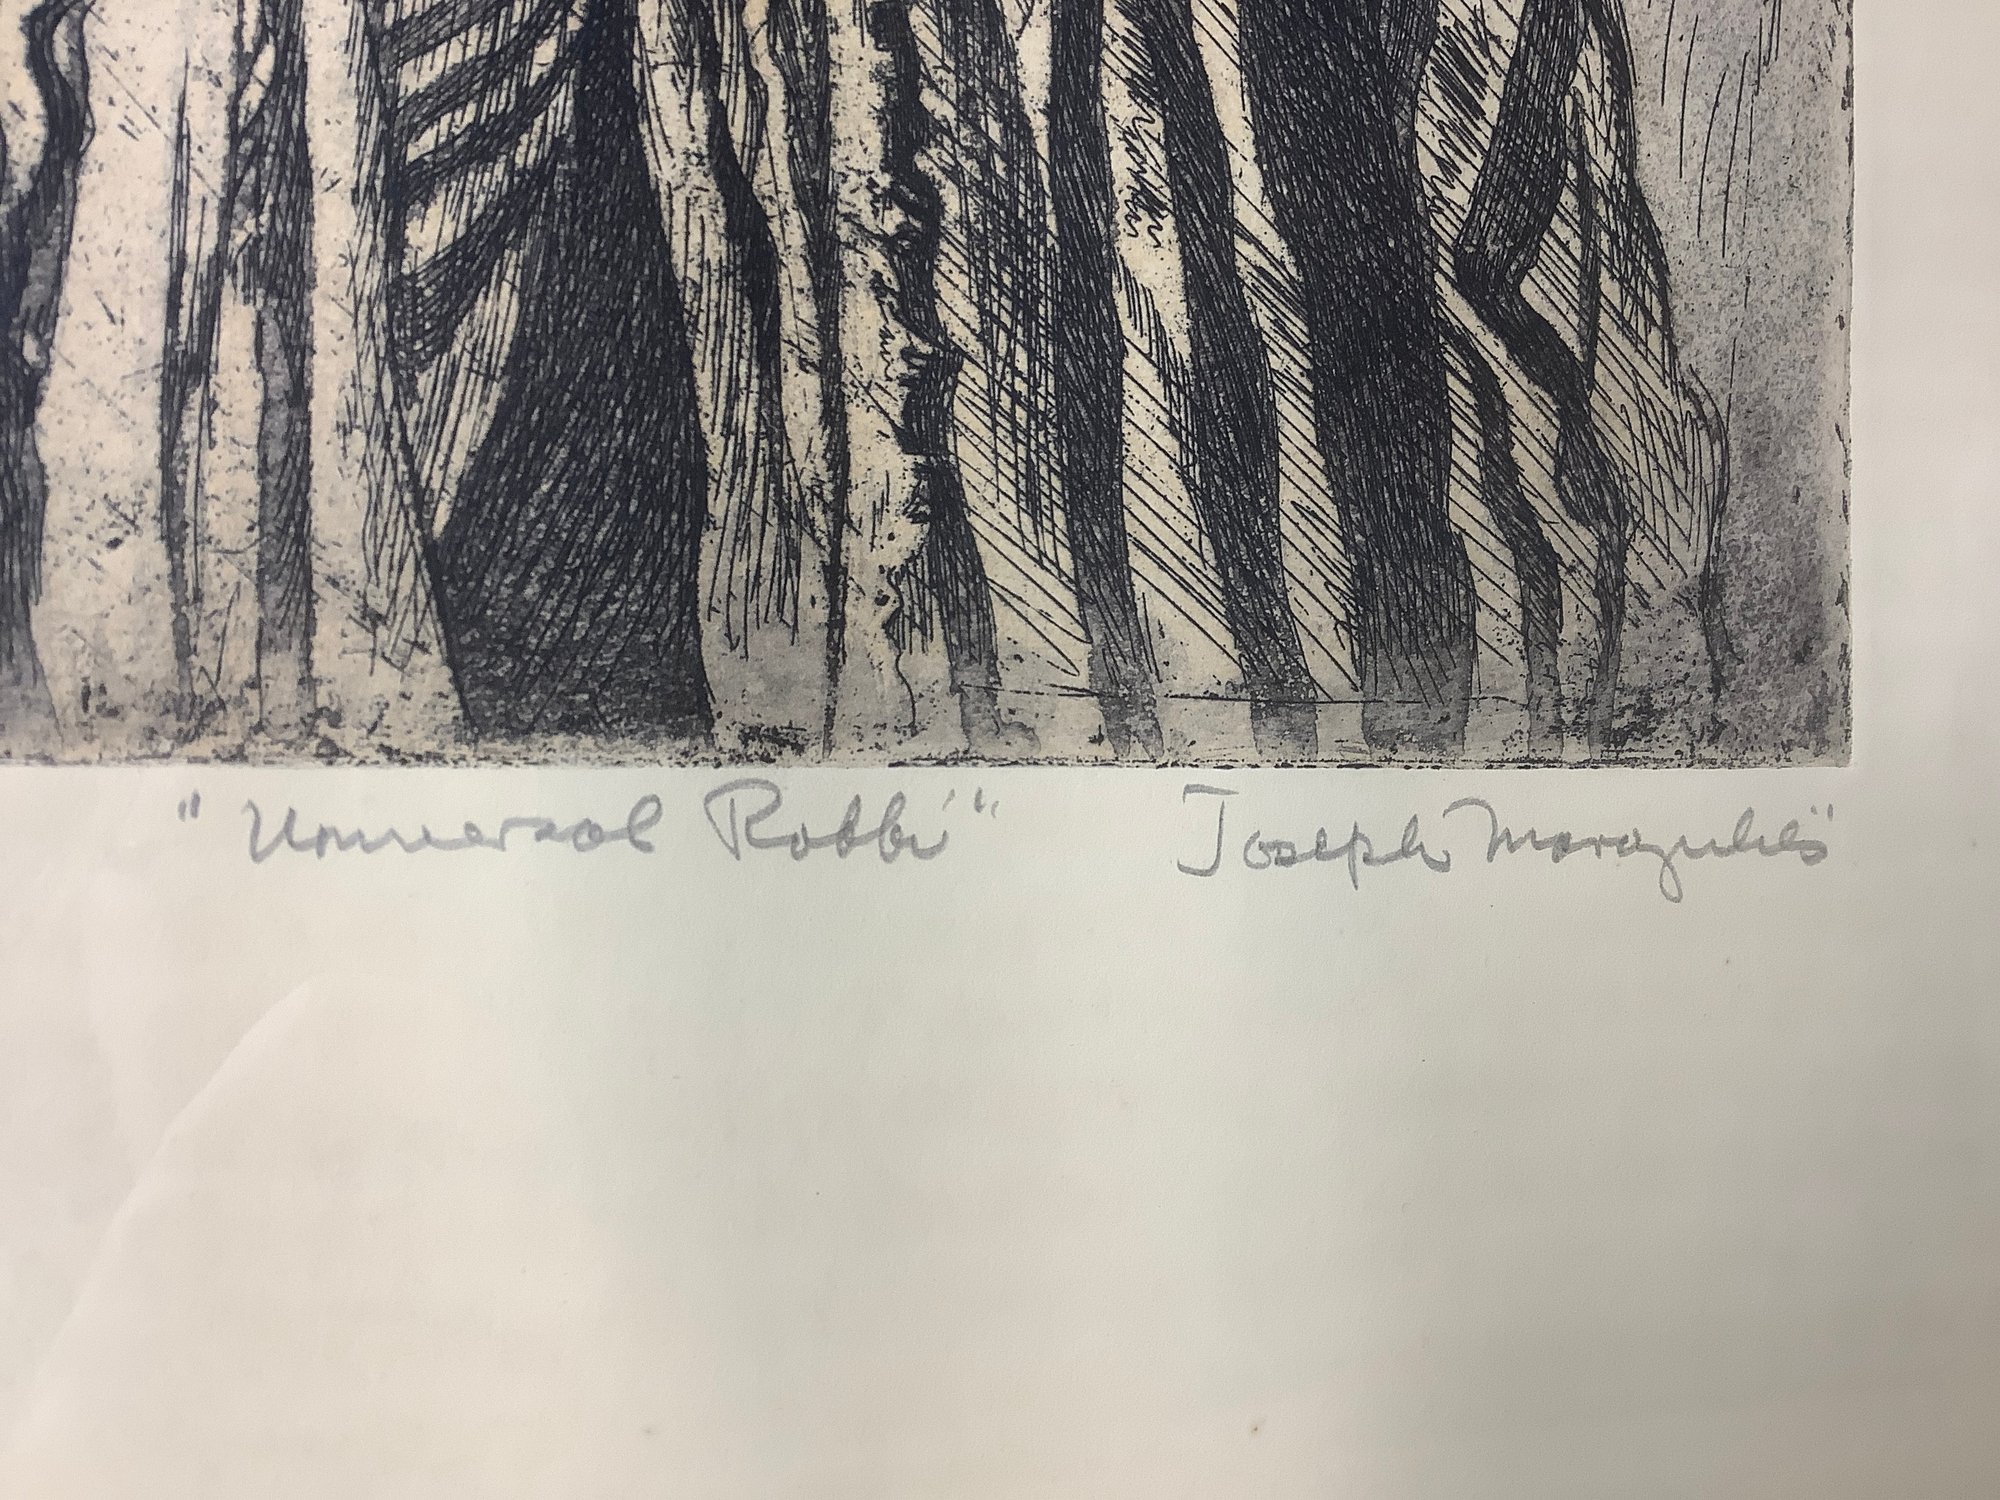 "Universal Rabbi" Joseph Margulies